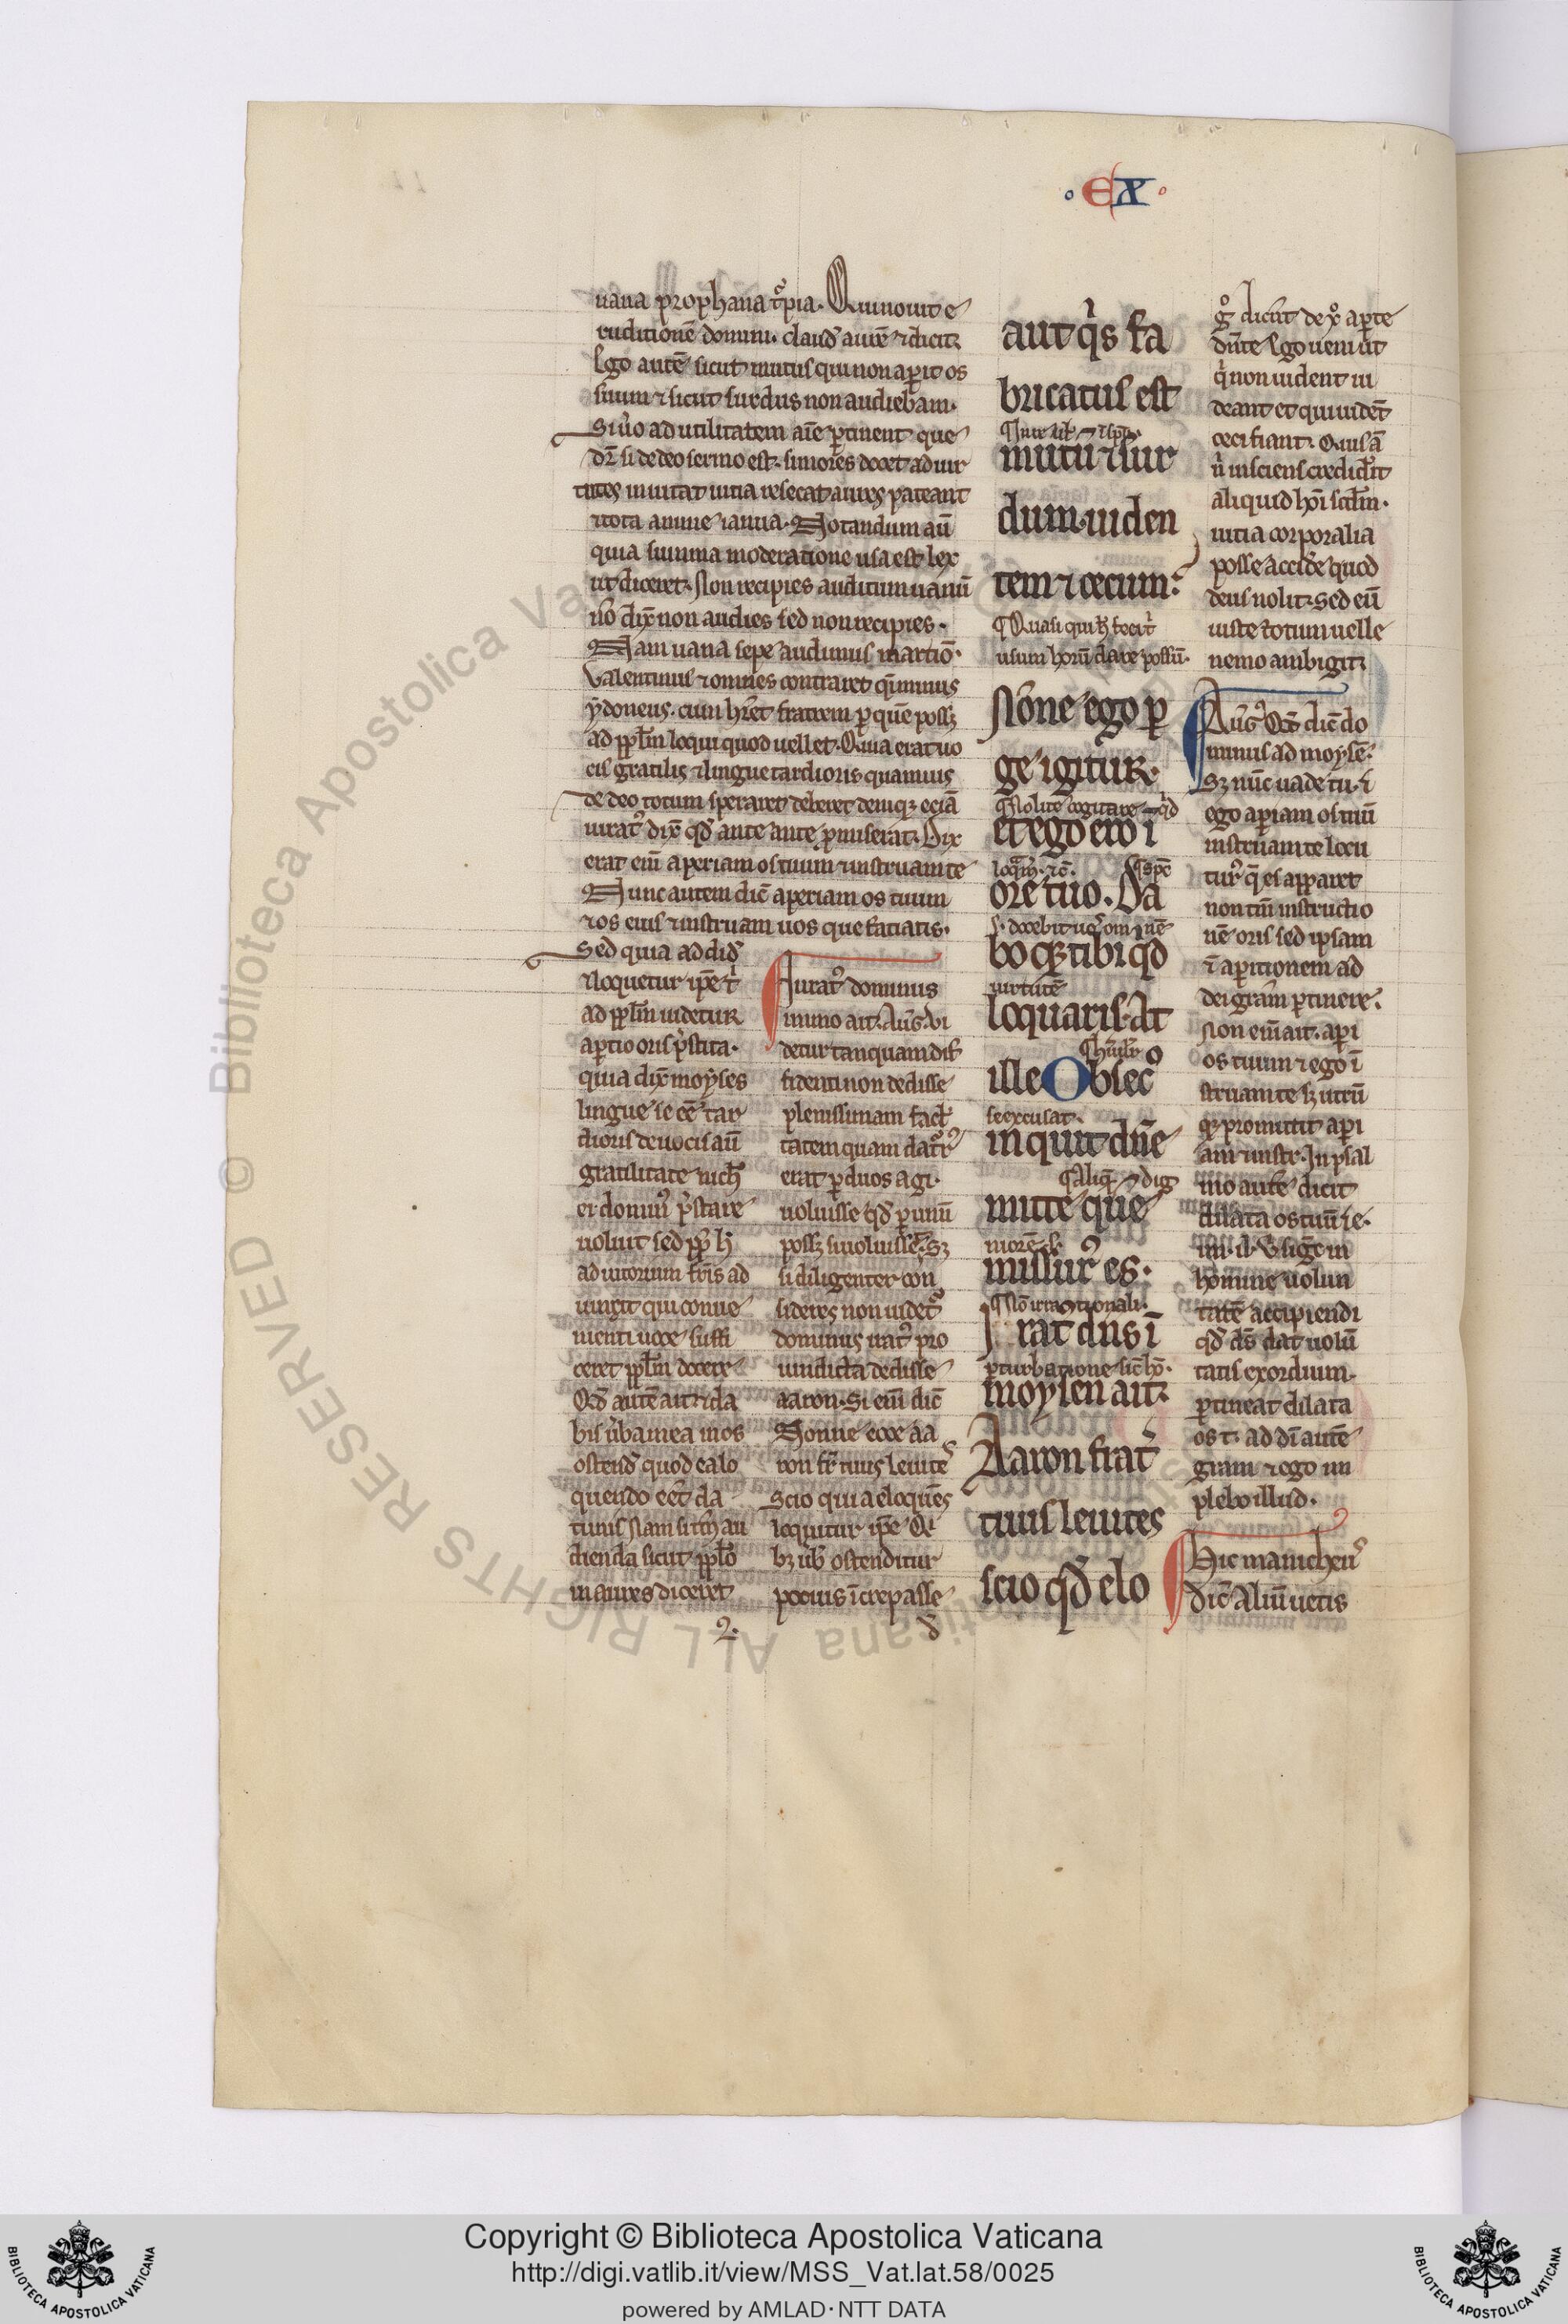 · EX ·
uana prophana t̾pia. Qui nouit e
ruditionē domini. claud̾ aurē ⁊ dicit.
Ego autē sicut mutus qui non aꝑit os
suum ⁊ sicut surdus non audiebam.
Si u̾o ad utilitatem aīe ꝑtinent que
dr̄ si de deo sermo est. si mores docet ad uir
tutes inuitat uitia resecat aures pateant
⁊ tota anime ianua. Notandum aū
quia summa moderatione usa est lex
ut diceret. Non recipies auditum uanū
nō dix̄ non audies sed non recipies.
Nam uana sepe audimus martiō.
Valentinus ⁊ omnes
ydoneus. cum hr̄et fratrem ꝑ quē possꝫ
ad pplm̄ loqui quod uellet. Quia erat uo
cis gratilis ⁊ lingue tardioris quamuis
de deo totum sperare deberet deniqꝫ eciā
irat̾ dix̄ qd̾ ante ante ꝓmiserat. Dix
erat eīm aperiam os tuum ⁊ instruam te
Nunc autem dic̄ aperiam os tuum
⁊ os eius ⁊ instruam uos que faciatis.
Sed quia addid̾
⁊ loquetur ip̄e t̾
ad pplm̄ uidetur
aꝑtio oris p̾stita.
quia dix̄ moyses
lingue se eē tar
dioris de uocis aū
gratilitate nich̾
ei domin̾ p̾stare
uoluit sed ꝓp̄ h̾
adiutorium fr̄is ad
iungit qui conue
nienti uoce suffi
ceret pplm̄ docere
Qd̾ autē ait ⁊ da
bis u̾ba mea in os
ostend̾ quod ea lo
quendo eēt da
turus Nam si tm̄ au
dienda sicut pplo
in aures diceret
Irat̾ dominus
in uno ait. Aug̾. Vi
detur tanquam dif
fidenti non dedisse
plenissimam facl̾
tatem quam dat̾r̾
erat ꝑ duos agi.
uoluisse qd̾ ꝑ unū
possꝫ si uoluissē. Sꝫ
si diligenter con
sideres non uidet̾
dominus irat̾ pro
uindicta dedisse
aaron. Si eīm dic̄
Nonne ecce aa
ron fr̄ tuus leuite
Scio quia eloquēs
loquitur ip̄e
bꝫ ub̾ ostenditur
pocius īcrepasse
aut q̾s fa
bricatus est
mutū ⁊ sur
dum. uiden
tem ⁊ cecum.
¶Quasi qui h̾ fecit
usum horū dare possū.
Nōne ego ꝑ
ge igitur.
¶Nolite cogitare ⁊ qd
et ego ero ī
ore tuo. Do
s. docebit uos om̄ nē
boqꝫ tibi qd̾
uirtutē
loquaris. At
¶hūilit̾
ille Obsec̾
se excusat.
inquit dn̄e
¶Aliq̄ ⁊ dig
mitte que
niorē s.
missur̾ es.
¶Nō irrationali.
Irat̾ dn̄s ī
ꝑturbatione sic hō.
moysen ait.
Aaron frat̾
tuus leuites
scio qd̾ elo
g̊ dicūt de xp̊ aꝑte
dn̄te Ego ueni ut
q̾ non uident ui
deant et qui uidēt
ceci fiant. Quis ā
n̄ insciens crediderit
aliquid hoī scdm̄.
uitia corporalia
posse accide̾ quod
deus nolit. Sed eū
iuste totum uelle
nemo ambigit.
Aug̾ Qd̾ dic̄ do
minus ad moysē
Sꝫ nūc uade tu. ⁊
ego aꝑiam os tuū
instruam te locu
tur̾ q̄ es apparet
non tm̄ instructio
nē oris sed ipsam
ē aꝑitionem ad
dei gr̄am ꝑtinere.
Non eīm ait. aꝑi
os tuum ⁊ ego ī
struam te sꝫ utrū
qꝫ promittit aꝑi
am ⁊ instr̾. In psal
mo autē dicit
dilata os tuū ⁊ e.
im. il. Vb̾ signat in
homine uolun
tatē accipiendi
qd̾ ds̄ dat uolū
tatis exordium.
ꝑtineat dilata
os t. ad dī autē
gr̄am ⁊ ego im
plebo illud.
Hic manicheus
dic̄ Aliū uetis
Copyright © Biblioteca Apostolica Vaticana
http://digi.vatlib.it/view/MSS_Vat.lat.58/0025
powered by AMLAD · NTT DATA
BIBLIOTECA APOSTOLICA VATICANA
BIBLIOTECA APOSTOLICA VATICANA
© Biblioteca Apostolica Vaticana ALL RIGHTS RESERVED